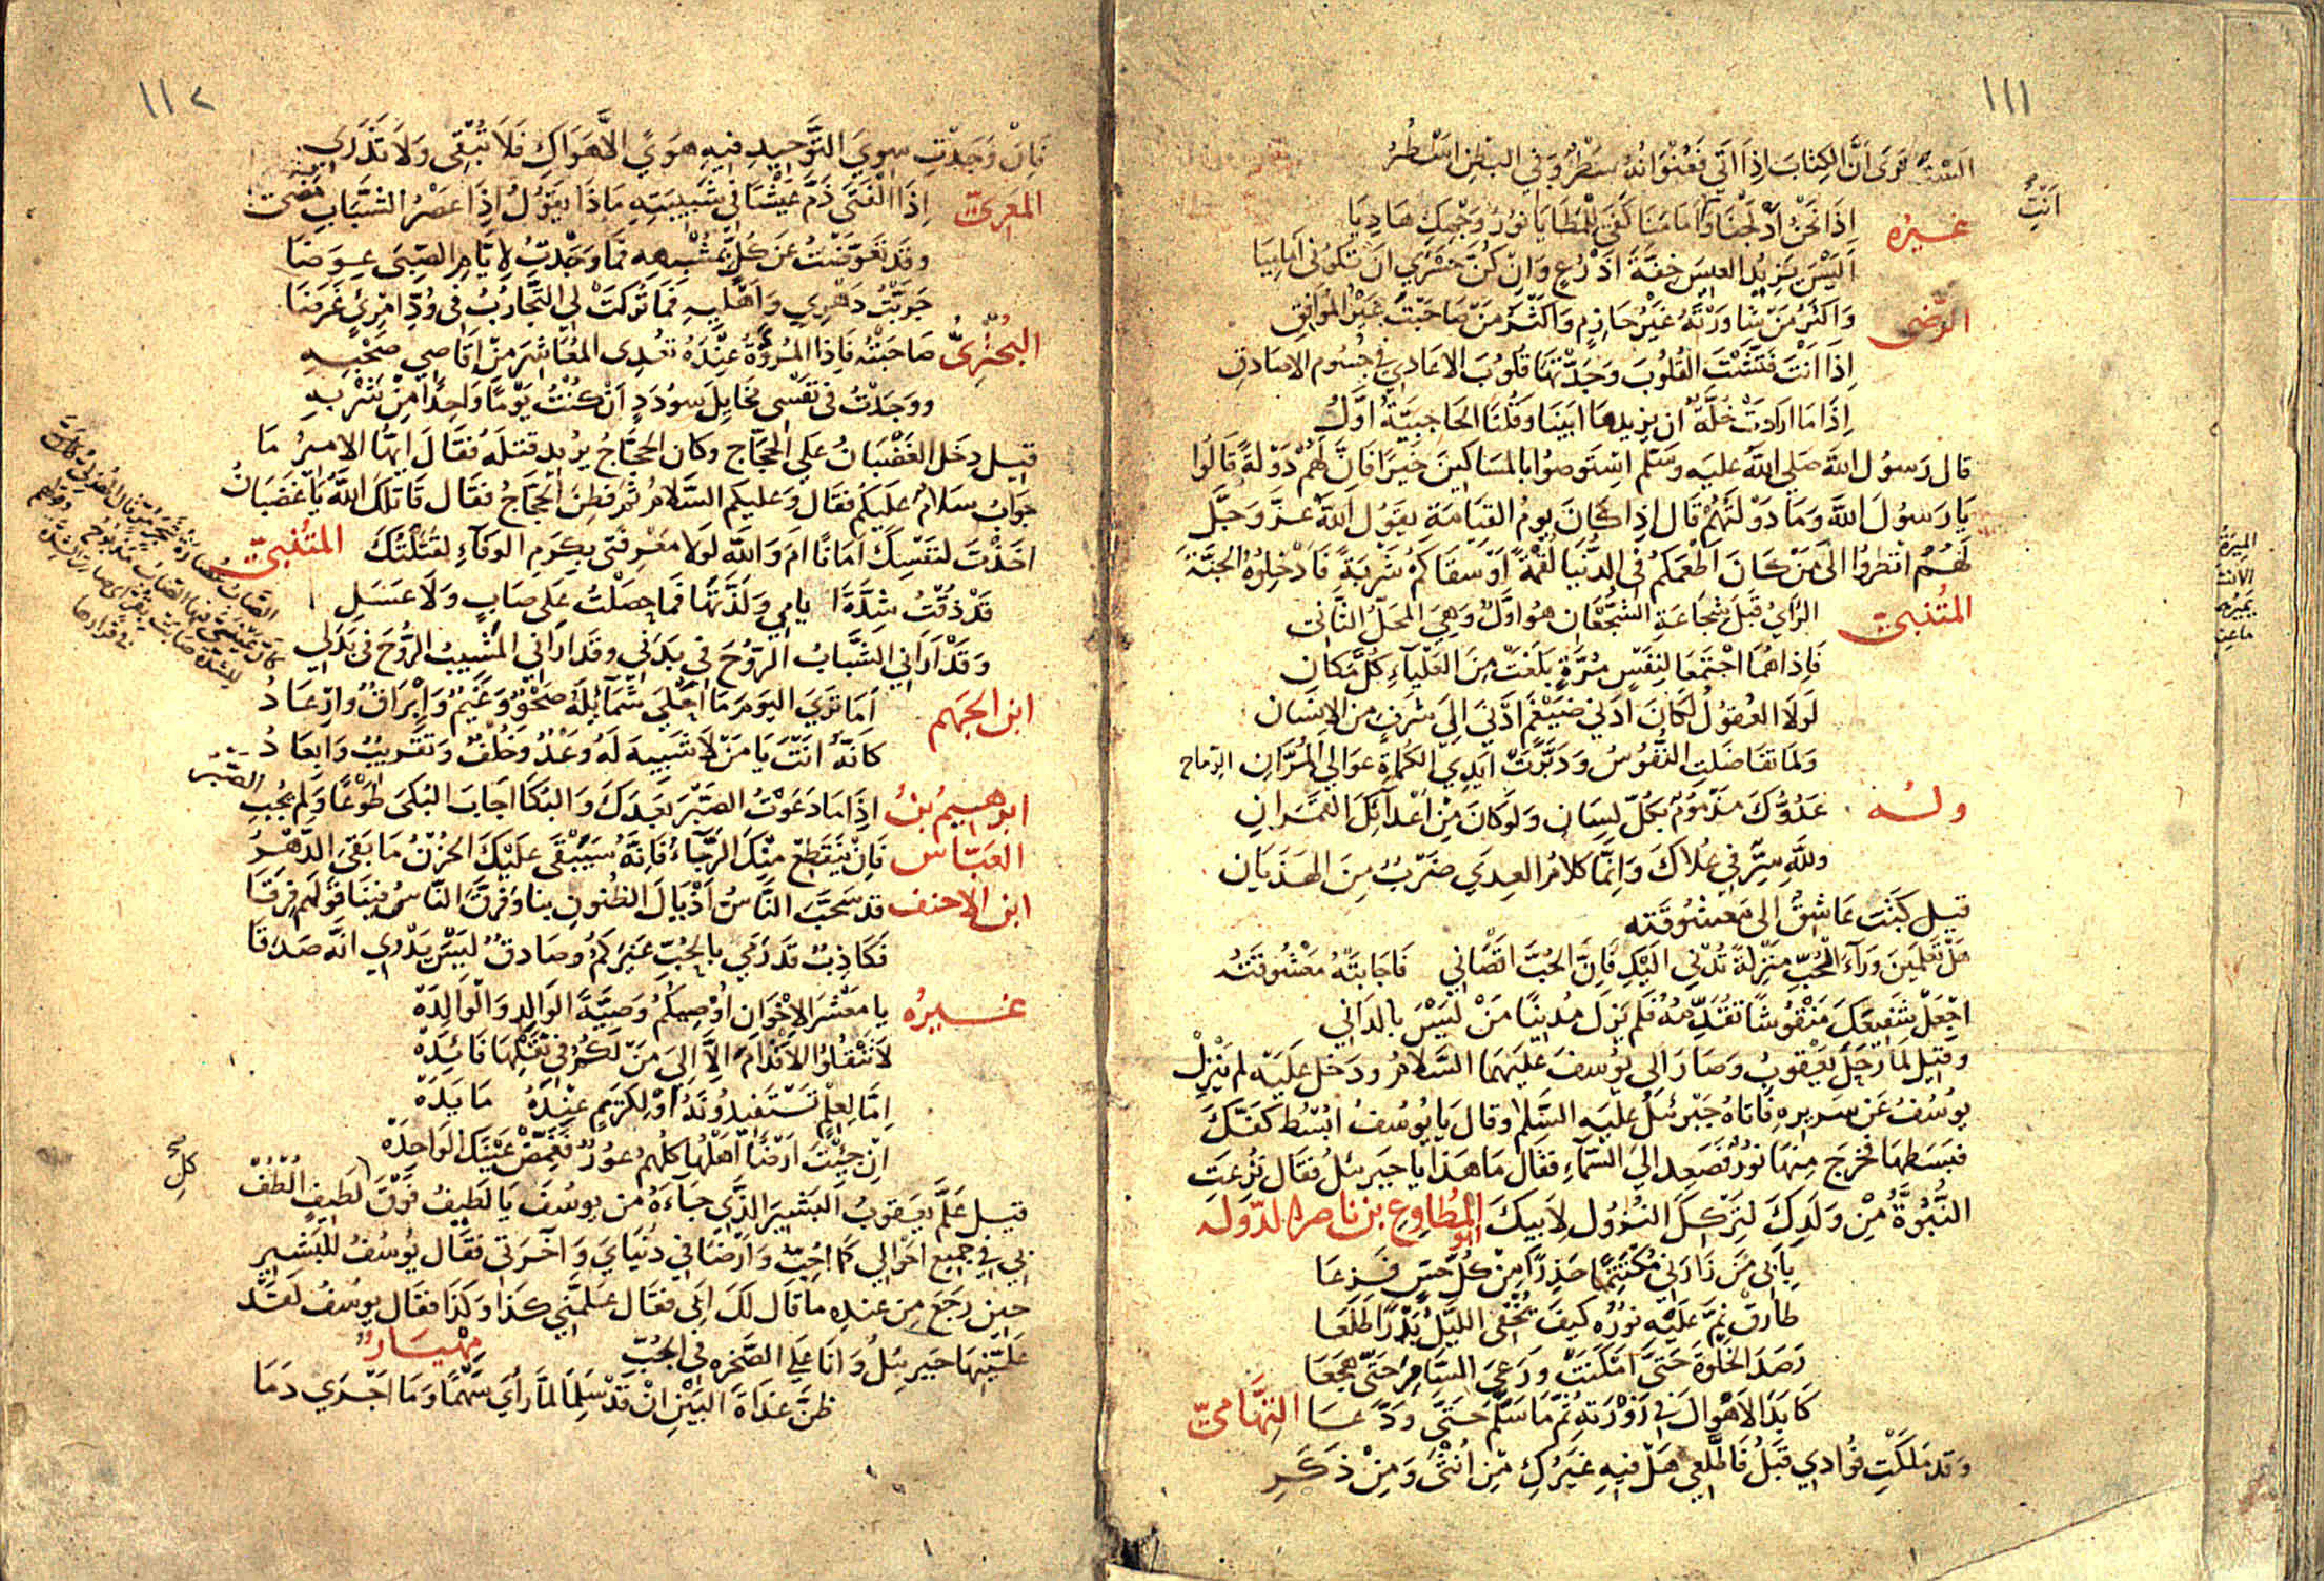 ١١١
السْتَ تَرى أنَّ الكِتابَ اِذَا اَتى فَعُنْوَانُهُ سَطْرٌ وَفي البَطْنِ اَسْطُرُ
أنْتَ
غيرُه اِذَا نَحْنُ أدْلَجْنَا وَأمَامَنَا كَفَى لِلْمَطَايَا نُورُ وَجْهِكَ هَادِيَا
اَلَيْسَ يَزِيدُ العِيسَ خِفَّةَ اَذْرُعٍ وَاِنْ كُنَّ حَسْرَى اَنْ تَكُونِى اَمَامِيَا
الرّضى وَاكْثَرُ مَنْ شَاوَرْتَهُ غَيْرُ حَازِمٍ وَاكْثَرُ مَنْ صَاحَبْتَ غَيْرُ المُوَافِقِ
اِذَا اَنْتَ فَتَّشْتَ القُلُوبَ وَجَدْتَهَا قُلُوبَ الاعَادِي فِي جُسُومِ الاصَادِقِ
اِذَا مَا اَرَادَتْ خُلَّةٌ ان يزيلهَا ابَيْنَا وَقُلْنَا الحَاجِبيَّةُ اوَّلُ
قال رَسوُل اللهَ صَلى اللهُ عليَه وسَلم اسْتَوصُوا بالمسَاكينَ خَيرًا فَاِنَّ لَهُمْ دَوْلةً قَالُوا
يَا رَسوُلَ اللهَ وَمَا دَوْلتَهُمْ قَال اِذَا كانَ يوُمُ القيَامَةِ يقوُل اللهَ عَزَّ وَجَلَّ
لَهُمُ انظرُوا الى مَنْ كانَ اَطْعَمكُم فى الدُّنيَا لُقْمَةً اوْ سَقاكمُ شَرْبَةً فَادْخِلوُهُ الجنَّةَ
المُتنَبىّ الرَّايُ قَبلَ شجَاعَةِ الشجْعَان هُو اوَّلٌ وَهِيَ المحَلُّ الثَّانى
فَاِذَا هُمَا اجْتمَعَا لِنَفْسٍ مُرَّةٍ بَلَغَتْ مِنَ العَلْيَآءِ كُلَّ مَكان
لَولَا العُقوُلُ لَكانَ ادَنى ضَيْغَمٍ ادْنَى اِلَى شَرَفٍ مِنَ الاِنسَان
وَلمَا تفَاضَلتِ النُّفوُسُ وَدَبَّرَتْ ايدِي الكُمَاةِ عَوَالي المُرَّانِ الرّماح
وله عَدُوُّكَ مَذْمُومٌ بكُلِّ لِسَانٍ وَلوْ كانَ مِنْ اَعْدآئِكَ القَمَرَانِ
وللهِ سِرٌّ في عُلاكَ وَاِنَّما كَلامُ العِدَي ضَرْبٌ مِنَ الهَذَيَان
قيل كتَبَ عَاشِقٌ الى مَعشُوقَته
هَلْ تَعْلمِينَ وَرآءَ الحُبِّ مَنزِلَةً تُدْني اليْكِ فَاِنَّ الحُبَّ اقْصَانِي فاجَابتْهُ مَعْشُوقَتُه
اجْعَلْ شَفِيعَكَ مَنْقوُشًا تقَدِّمهُ فَلم يَزَل مُدنيًا مَنْ ليْسَ بالدَانِي
وقيل لمَا رَحَلَ يَعْقوبُ وصَارَ الى يوُسفَ عَليهمَا السَّلامُ ودَخل عَليَه لم يَنْزِلْ
يوُسُفُ عَن سَريرِهِ فَاتاهُ جَبْرئلُ عليَه السَّلم وقال يَا يوُسفُ ابْسُط كفَّكَ
فبَسَطهَا فخرَج مِنهَا نورٌ فَصَعِد الى السّمَآءِ فقَال مَا هَذَا يا جبَرئلُ فقَال نُزِعَتِ
النُّبُوَّةُ مِنْ وَلدِكَ لِتَرْككَ النُزوُل لِأبيكَ ابو المُطَاوِعِ بن ناصر الدّوله
بِأَبي مَنْ زَارَنى مُكْتَتِمًا حَذِرًا مِنْ كُلّ حِسٍّ فَزِعَا
طارقٌ نَمَّ عَلَيْهِ نورُه كيفَ يُخفى الليْلُ بَدْرًا طَلعَا
رَصَدَ الخَلوَةَ حَتىَّ امْكنَتْ ورَعىَ السَّامِرَ حَتىّ هجَعَا
كابَدَ الاَهْوَالَ في زَوْرَتهِ ثمَّ مَا سَلَّمَ حَتىَّ وَدّعَا التِّهَامىّ
وَقد مَلكَتِ فُؤادي قَبلُ فَاطَّلعِي هَلْ فيهِ غيَرُكِ مِنْ اُنْثَى وَمِنْ ذَكَرِ
الميرة
١١٢
فَاِنْ وَجَدْتِ سِوى التَّوْحِيدِ فيهِ هَوىً الاَّ هَوَاكِ فَلَا تُبْقى وَلَا تَذَرَى
المَعرىّ اِذَا الْفَتَى ذَمَّ عَيْشًا فى شَبيبَتِهِ مَاذَا يَقوُلُ اِذَا عَصْرُ الشَّبَابِ مَضى
وقَد تعَوَّضْتُ عَن كُلّ بمُشْبههِ فمَا وَجَدْتُ لِأيَّامِ الصِّبىَ عِوَضَا
جَرَّبْتُ دَهْرِي وَاَهْليهِ فَمَا تُركَتْ لى التَّجَاربُ فى وُدِّ امْرِئٍ غَرَضَا
البُحْتُرىّ صَاحَبْتُهُ فَاِذا المُروَّةُ عِنْدَهُ تعْدِى المُعَاشِرَ مِنْ اقَاصِي صَحْبِهِ
ووَجَدْتُ فى نفْسى مخَايلَ سُودَدٍ اَنْ كنْتُ يَوْمًا وَاحِدًا مِنْ شَرْبهِ
قيل دخَل الغَضْبَانُ على الحجّاج وكان الحجَّاجُ يرُيد قتلَهُ فقَالَ ايهَّا الاميرُ مَا
جوَابُ سَلامٌ عَليكُمْ فقَال وَعليكم السَّلامُ ثمّ فَطِنَ الحجَّاجُ فقَال قَاتلكَ اللهُ يَا غَضبَانُ
اخَذْتَ لنفْسِكَ اَمَانًا امَ وَاللهِ لَولا معْرِفَتى بكَرَمِ الوَفآءِ لقَتَلْتُكَ المتُنبىّ
قَدْ ذُقْتُ شدَّةَ ايامِي وَلذّتهَا فمَا حصَلتُ عَلى صَابٍ وَلا عَسَلِ
وَقَدْ اَرَانى الشَّبَابُ الرُّوحَ في بدَنى وقدَ ارَاني المَشيبُ الرُّوحَ فى بَدَلى
ابن الجهم اَمَا تَرَى اليَوْمَ مَا احْلَى شَمَآئِلَهُ صَحْوٌ وَغَيْمٌ وَاِبْرَاقٌ وَارْعَادُ
كَانّهُ اَنْتَ يَا مَنْ لَا شَبيهَ لَهُ وَعْدٌ وخُلْفٌ وَتقْريبٌ وَابعَادُ
ابرهيمُ بنُ العبّاس اِذَا مَا دَعَوْتُ الصَبْرَ بعدَكَ وَالبُكَا اجَابَ البُكىَ طَوْعًا وَلم يجبِ الصَّبْرُ
فَاِنْ يَنْقَطِعْ مِنْكَ الرَّجَآءُ فَاِنّهُ سَيَبْقَى عَلَيْكَ الحُزْنُ مَا بَقىَ الدّهْرُ
ابن الاحنف قد سَحَّبَ النَّاسُ اَذْيَالَ الظُنونِ بنا وَفرَّقَ النَّاسُ فينَا قَوْلَهم فِرَقَا
فَكَاذِبٌ قَد رَمى بالحُبِّ غيَركمُ وَصَادقٌ ليْسَ يَدْرى انّهُ صَدَقَا
غيرُه يا مَعْشرَ الاِخْوَان اُوْصِيكُمُ وَصِيَّةَ الوَالدِ وَالْوَالِدَهْ
لاَ تنْقُلوُا الاَقْدَامَ اِلَّا اِلىَ مَنْ لَكمُ في نَقْلِهَا فَائِدَهْ
اِمّا لعِلْمٍ تَسْتَفيدُونَهُ اَوْ لِكَرِيمٍ عِنْدَهُ مَايدَهْ
اِنْ جِئْتَ اَرْضًا اَهْلُهَا كلُّهُمْ عوُرٌ فَغَمِّضْ عَيْنَكَ الوَاحِدَهْ
قيل عَلَّمَ يعَقوبُ البَشيرَ الذِّي جَاءَهُ من يوسُفَ يَا لَطيفُ فَوْقَ كل لطيفٍ الْطُفْ
بى فى جميع احْوالى كما احُبّ وَاَرْضَاني فى دُنيَايَ وَآخرَتى فقَال يوُسُفُ للبَشير
حين رجَعَ مِن عندِه ما قال لكَ اَبى فقَال علمَّنى كذَا وَكذَا فقَال يوسُفُ لقَد
عَلمَّنيهَا جَبرئلُ وَانا على الصَّخرهِ في الجُبّ مِهْيَارٌ
ظَنَّ غدَاةَ البَيْنِ اَنْ قَدْ سَلِمَا لمَّا رأى سَهْمًا وَمَا اَجْرَي دَمَا